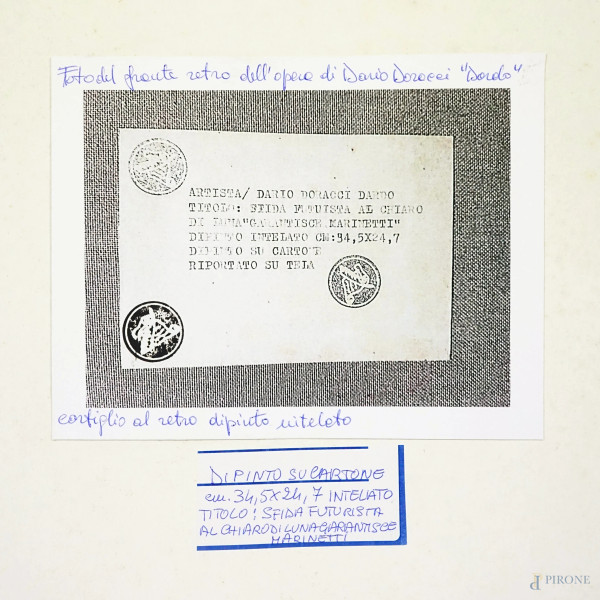 Foto del fronte retro dell'opera di Dario Doracci "Dardo"
ARTISTA/ DARIO DORACCI DARDO
TITOLO: SFIDA FUTUISTA AL CHIARO
DI LUNA"GARANTISCE MARINETTI"
DIPINTO INTELATO CM:34,5X24,7
DIPINTO SU CARTONE
RIPORTATO SU TELA
cortiglio al retro dipinto intelato
DIPINTO SU CARTONE
cm. 34,5X24,7 INTELATO
TITOLO: SFIDA FUTURISTA
AL CHIARO DI LUNA GARANTISCE
MARINETTI
PIRONE